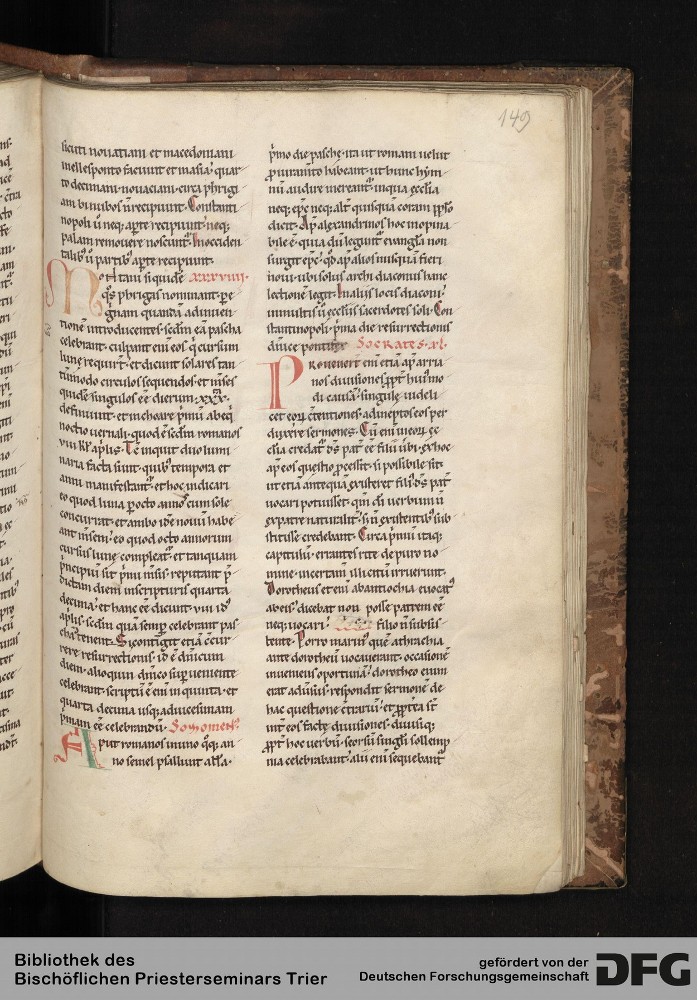 149
sicuti nouatiani et macedoniani
in ellesponto faciunt et in asia quar
to decimani. nouaciani circa phrigi
am binubos n̄ recipiunt. Constanti
nopoli ū neq; aperte recipiunt. neq;
palam remouere noscunt᷑. In occiden
talib; ū partib; aperte recipiunt.
Motitani siquidē XXXVIIII.
qs̄ phrigas nominant. pe
gnam quandā adinuen
tionē introducentes. scdm̄ eā pascha
celebrant. culpant eni͂ eos q̄ cursum
lunę requirt᷑. et dicunt solares tan
tūmodo circulos sequendos. et m̄ses
quidē singulos eē dierum. xxx.
definiunt. et inchoare p̄mū ab eq̄
noctio uernali. quod ē scdm̄ romanos
VIII kł aplis. Tē inquit duo lumi
naria facta sunt. quib; tempora et
anni manifestant᷑. et hoc indicari
eo quod luna p octo annos cum sole
concurrat. et ambo idē nouū habe
ant m̄sem. eo quod octo annorum
cursus lunę compleat᷑. et tanquam
p̄ncipiū sit p̄mi m̄sis. reputant p̄
dictam diem inscripturis quarta
decima. et hanc eē dicunt. VIII id᷒
aplis. scdm̄ quā semp celebrant pas
cha tenent. Si contigit etiā c̄cur
rere resurrectionis. id ē dn̄icum
diem. alioquin dn̄ico superueniente
celebrant. scriptū ē eni͂ inquint a. et
quarta decima usq; ad uicesimam
p̄mam eē celebrandū. Sozomen᷒.
Aput romanos in uno q̄q; an
no semel psallunt alła.
p̄mo die paschę. ita ut romani uelut
p iuramto habeant. ut hunc hym
nū audire mereant᷑. in qua ęcclia
neq; ep̄c neq; alt᷑ quisquā coram pplo
dicit. Ap̄ alexandrinos hoc inopina
bile ē. quia dū legunt᷑ euanglia non
surgit ep̄c. qd̄ ap̄ alios nusquā fieri
noui. ubi solus archidiaconus hanc
lectionē legit. In aliis locis diaconi.
in multis ū ęccliis sacerdotes soli. Con
stantinopoli. p̄ma die resurrectionis
dn̄ice pontifex. Socrates. xl.
Prouenert̄ eni͂ etiā ap̄ arria
nos diuisiones. ppt᷑ hui᷒mo
di causā. singulę uideli
cet eorū c̄tentiones. ad ineptos eos per
duxere sermones. Cū eni͂ in eorū ęc
clia credat᷑ ds̄ pat᷑ eē filii ūbi. ex hoc
ap̄ eos questio pcessit. si possibile sit
ut etiā anteq̄ua existeret fili᷒. ds̄ pat᷑
uocari potuisset. qm̄ di uerbum n̄
ex patre naturalit᷑. s; n̄ existentib; sub
stitisse credebant. Circa p̄mū itaq;
capitulū. errantes rite de puro no
mine. incertam illicitū irruerunt.
Dorotheus et eni͂ ab antiochia euocat᷒
ab eis. dicebat non posse patrem eē
neq; uocari. filio n̄ subsis
tente. Porro marin᷒ quē ath rachia
ante dorotheū uocauerant. occasionē
inueniens oportunā. dorotheo enim
erat aduersus. respondit sermone de
hac questione c̄trariū. et pptea st̄
int᷑ eos factę diuisiones. diuisiq;
ppt᷑ hoc uerbū. seorsū singli sollemp
nia celebrabant᷑. alii eni͂ sequebant᷑
Bibliothek des
Bischöflichen Priesterseminars Trier
gefördert von der
Deutschen Forschungsgemeinschaft
DFG